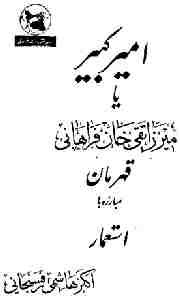 امیرکبیر
یا
میرزا تقی خان فراهانی
قهرمان
مبارزه با
استعمار
اکبر هاشمی رفسنجانی